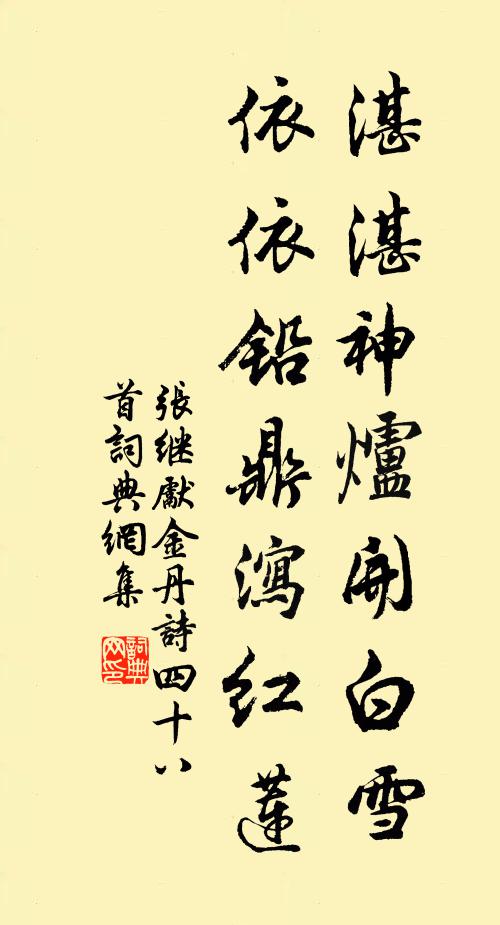 湛湛神爐開白雪
依依鉛鼎瀉紅蓮
張继獻金丹詩四十八
首詞典網集
詞典
网印